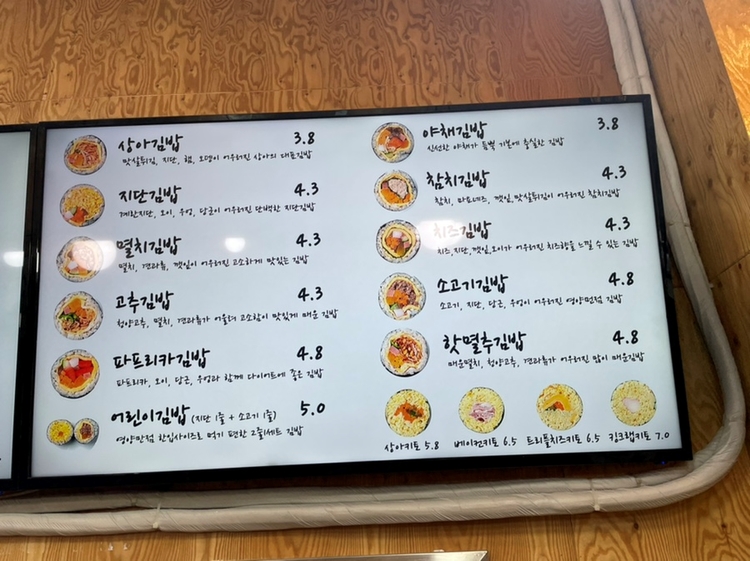 상아김밥 3.8
맛살튀김, 지단, 햄, 오뎅이 어우러진 상아의 대표김밥
지단김밥 4.3
계란지단, 오이, 우엉, 당근이 어우러진 단백한 지단김밥
멸치김밥 4.3
멸치, 견과류, 깻잎이 어우러진 고소하게 맛있는 김밥
고추김밥 4.3
청양고추, 멸치, 견과류가 어울려 고소함이 맛있게 매운 김밥
파프리카김밥 4.8
파프리카, 오이, 당근, 우엉과 함께 다이어트에 좋은 김밥
어린이김밥 (지단 1줄 + 소고기 1줄) 5.0
영양만점 한입사이즈로 먹기 편한 2줄1세트 김밥
야채김밥 3.8
신선한 야채가 듬뿍 기본에 충실한 김밥
참치김밥 4.3
참치, 마요네즈, 깻잎, 맛살튀김이 어우러진 참치김밥
치즈김밥 4.3
치즈, 지단, 깻잎, 오이가 어우러진 치즈향을 느낄 수 있는 김밥
소고기김밥 4.8
소고기, 지단, 당근, 우엉이 어우러진 영양만점 김밥
핫멸추김밥 4.8
매운멸치, 청양고추, 견과류가 어우러진 많이 매운김밥
상아키토 5.8 베이컨키토 6.5 트리플치즈키토 6.5 킹크랩키토 7.0